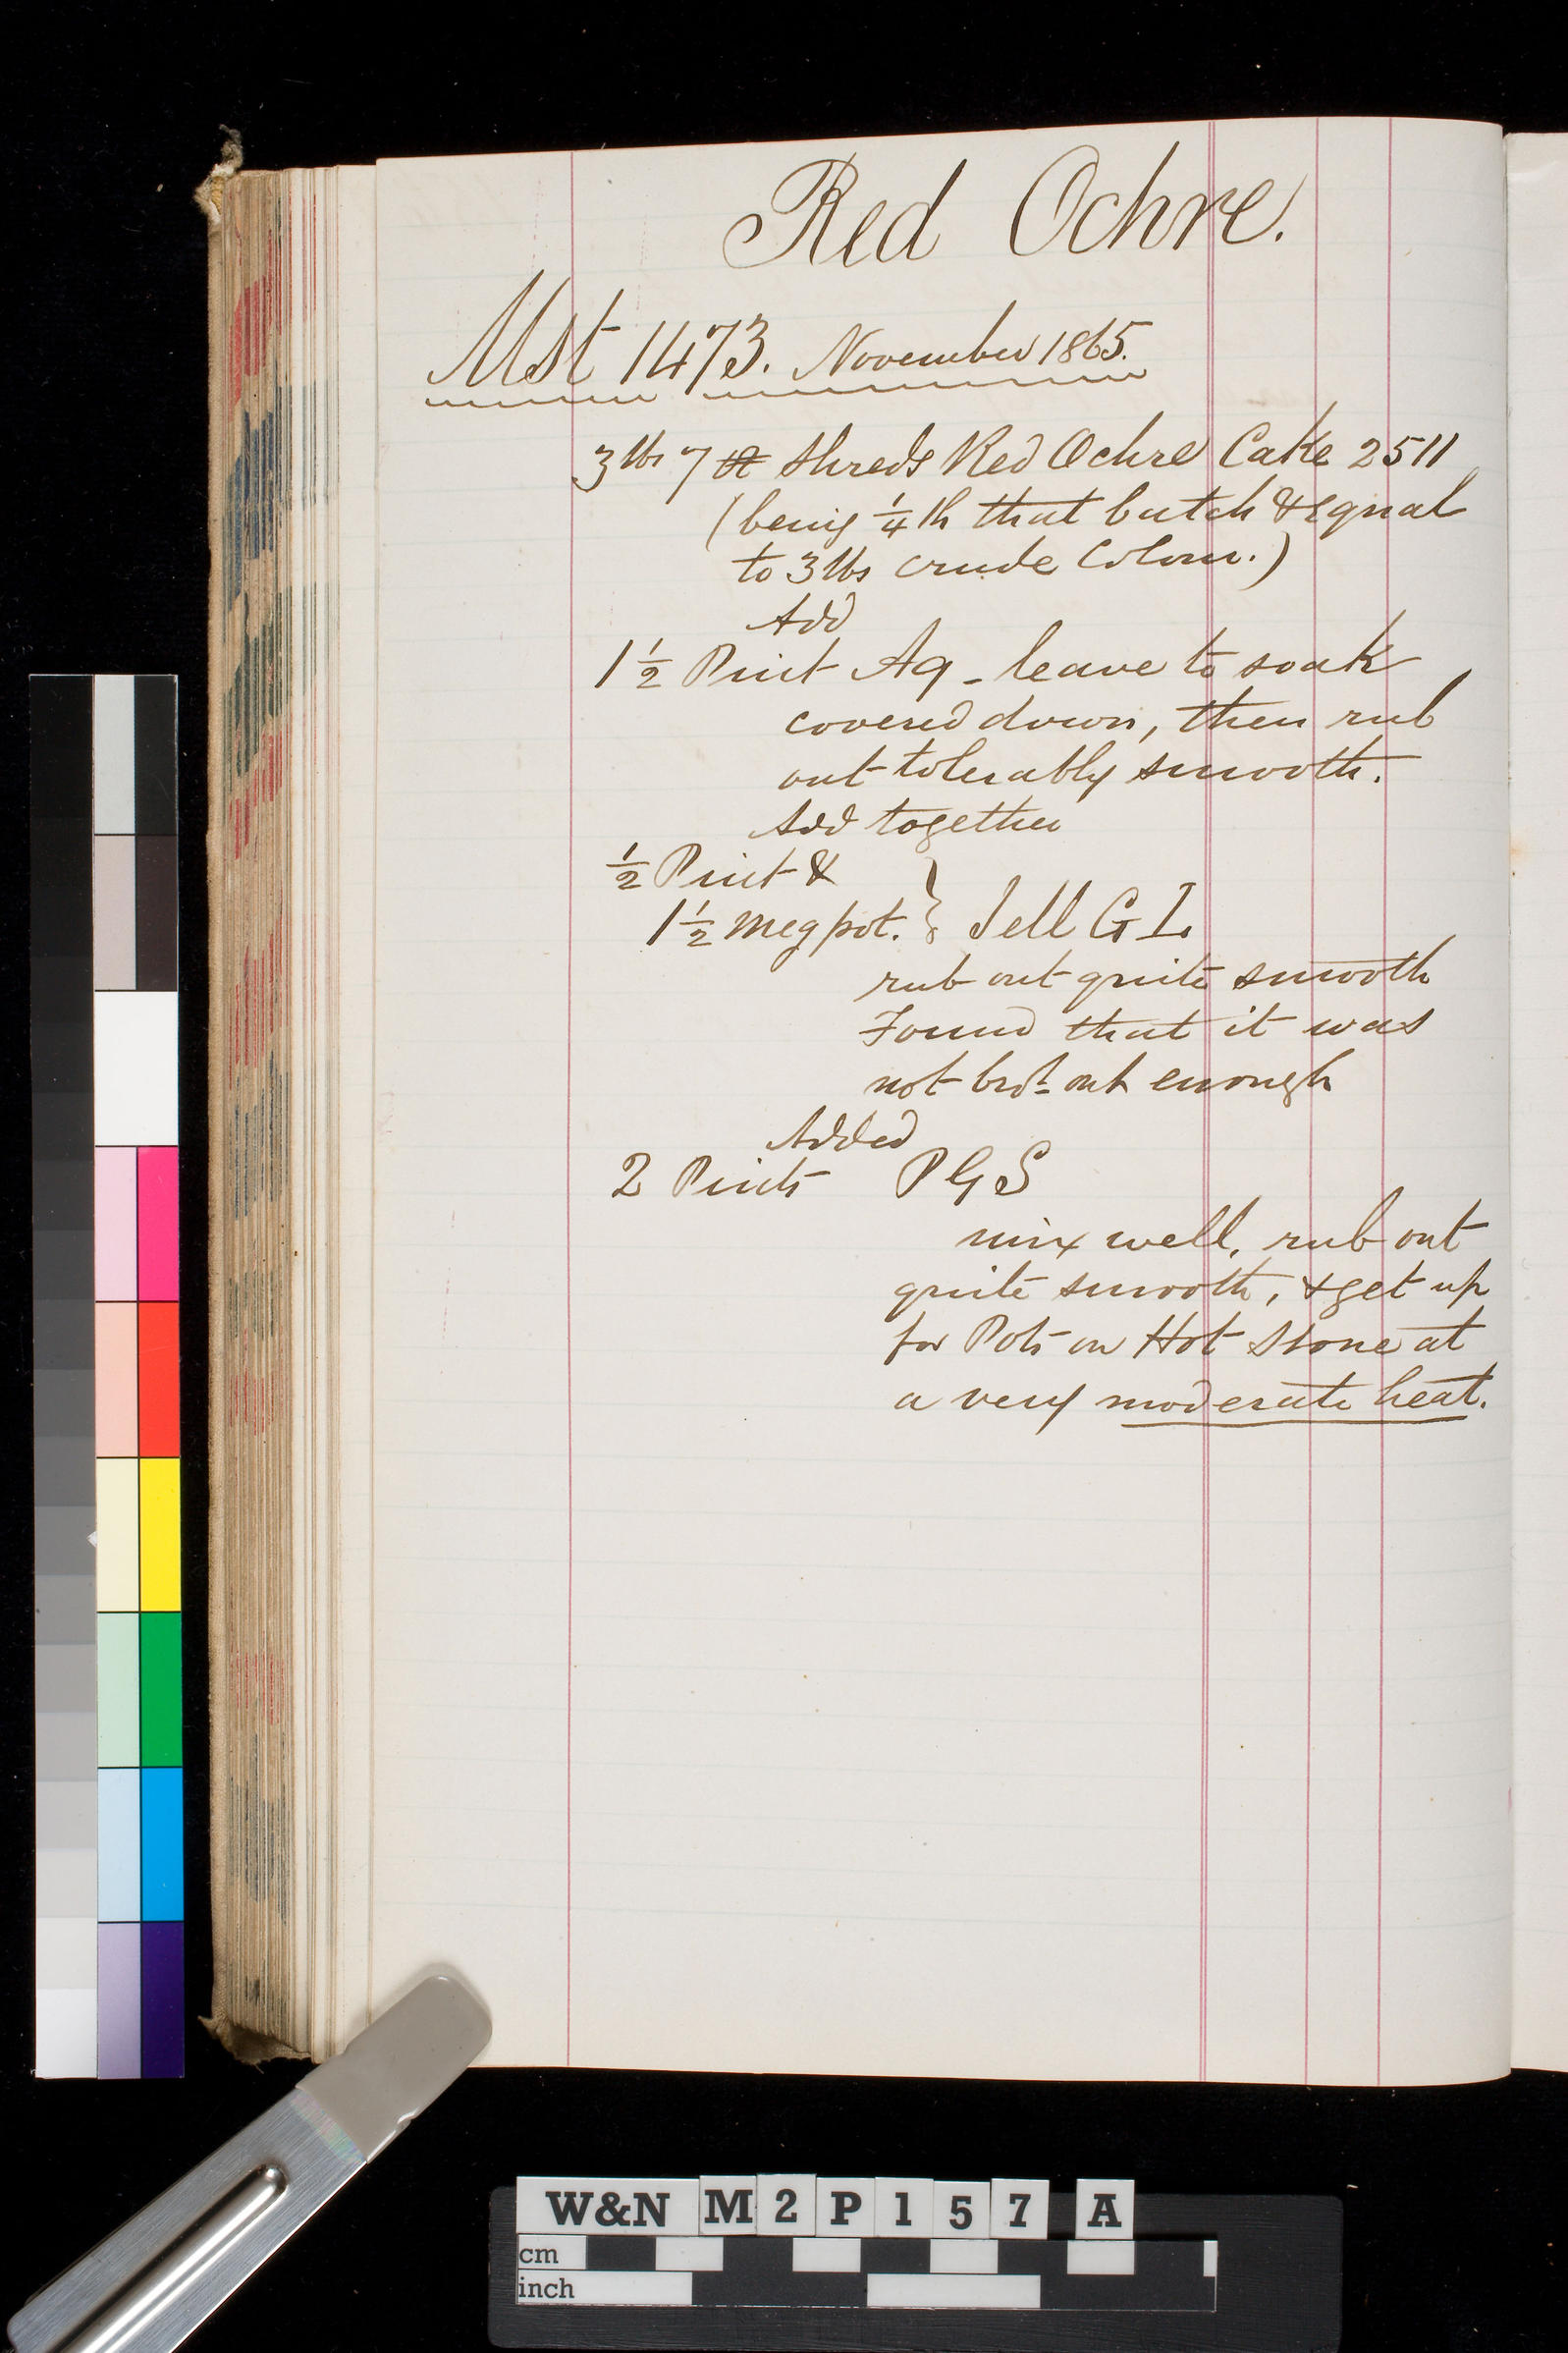 Red Ochre.
Mst 1473. November 1865.
3 lbs 7 oz Shreds Red Ochre Cake 2511
(being ¼th that batch & Equal
to 3 lbs crude Colour.)
Add
1 ½ Pint Aq - leave to soak
covered down, then rub
out tolerably smooth.
Add together
½ Pint &
1 ½ Meg pot. } Jell G I.
rub out quite smooth
Found that it was
not brot out enough
Added
2 Pints P G S
mix well, rub out
quite smooth, & get up
for Pots on Hot Stone at
a very moderate heat.
W&N M2P157 A
cm
inch